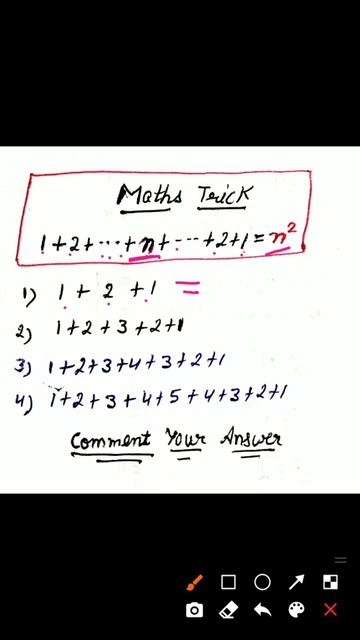 Maths Trick
1+2+...+n+...+2+1=n²
1) 1 + 2 + 1 =
2) 1+2+3+2+1
3) 1+2+3+4+3+2+1
4) 1+2+3+4+5+4+3+2+1
Comment Your Answer